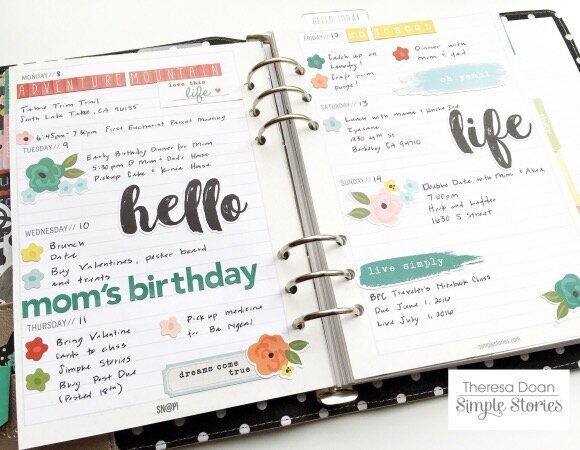 MONDAY// 8
ADVENTURE MOUNTAIN
love this
life
Tahoe Trim Trail
South Lake Tahoe, CA 96155
6:45pm - 7:30pm First Eucharist Parent Meeting
TUESDAY// 9
Early Birthday Dinner for Mom
5:30pm @ Mom & Dad's House
Pickup Cake & Korea House
hello
WEDNESDAY// 10
Brunch
Date
Buy Valentines, poster board
and treats
mom's birthday
THURSDAY// 11
Bring Valentine
cards to class
Simple Stories
Blog Post Due
(Posted 18th)
Pick up medicine
for Ba Ngoai
dreams come
true
SN@P!
HELLO TODAY
FRIDAY// 12
NO SCHOOL
Catch up on
laundry!
Craft room
purge!
Dinner with
mom & dad
oh yeah!
SATURDAY// 13
Lunch with mama & Uncle
1830 4th St
Berkeley CA 94710
life
SUNDAY// 14
Double Date with Mimi & Alex
7:00pm
Hook and Ladder
1630 S Street
live simply
BPC Traveler's Notebook Class
Due June 1, 2016
Live July 1, 2016
simplestories.com
Theresa Doan
Simple Stories